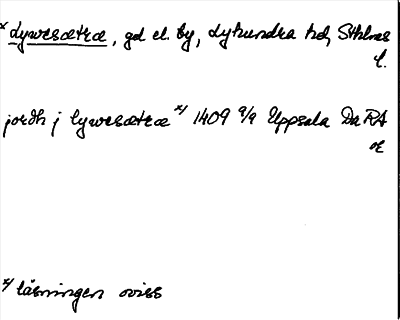 x Lywesætræ, gd el. by, Lyhundra hd, Sthlms
l.
jordh j lywesætræ x/ 1409 9/9 Uppsala Da RA
or
x/ läsningen oviss